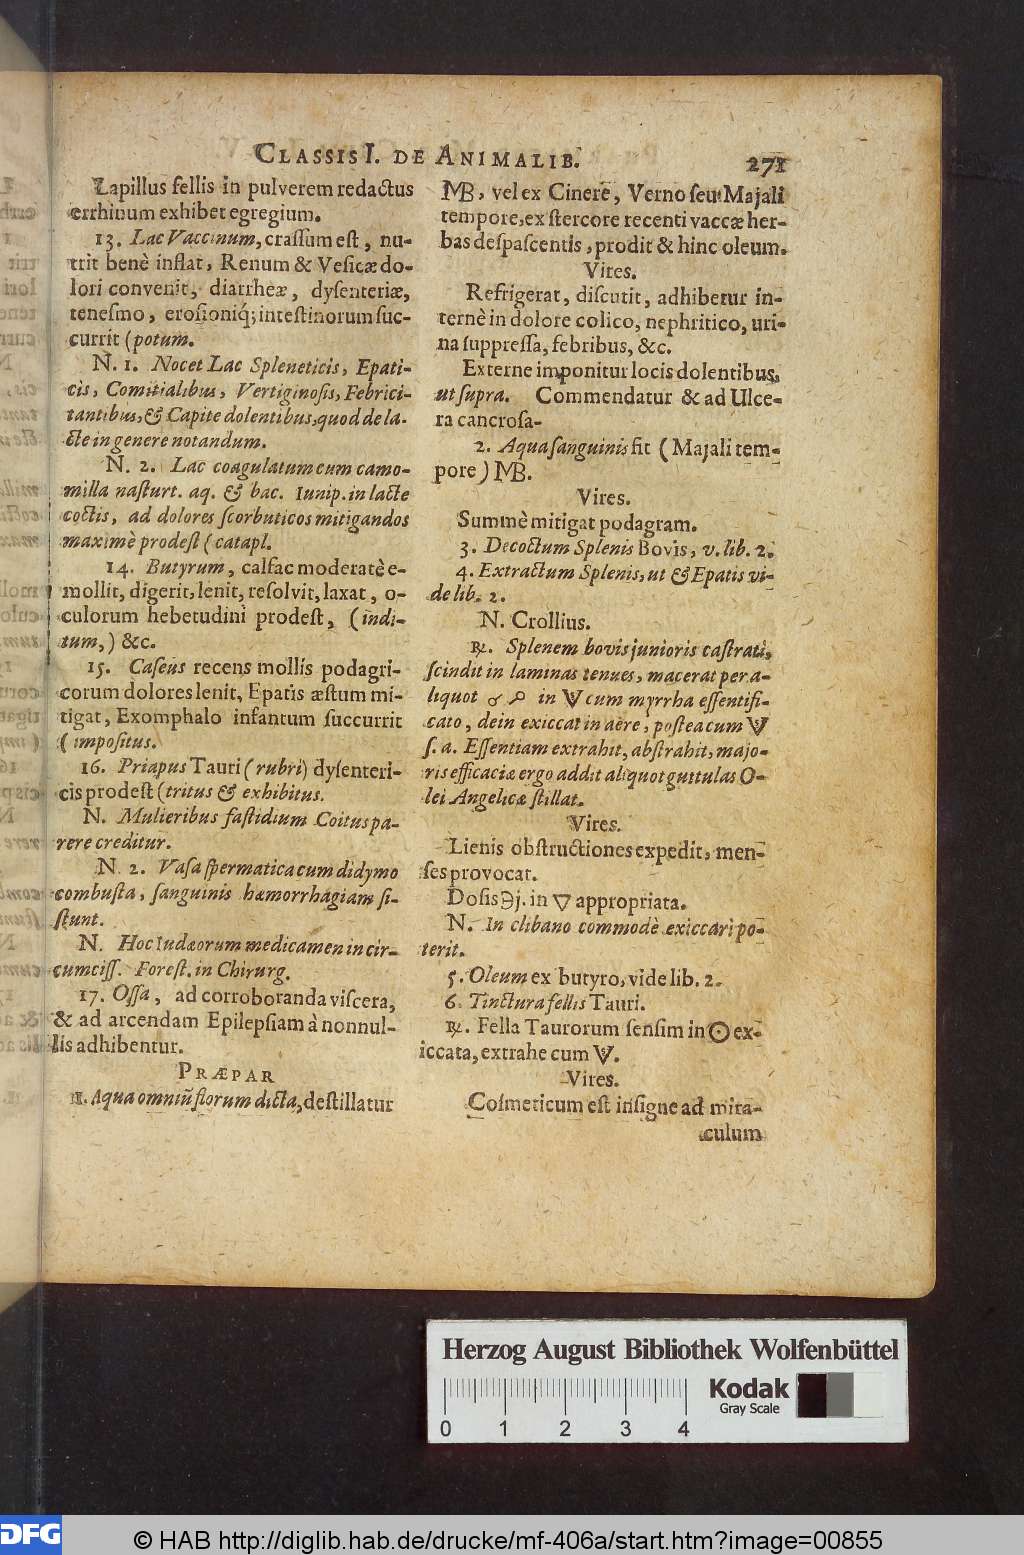 CLASSIS I. DE ANIMALIB. 271
Lapillus fellis in pulverem redactus
errhinum exhibet egregium.
13. Lac Vaccinum, crassum est, nu-
trit benè inflat, Renum & Vesicæ do-
lori convenit, diarrheæ, dysenteriæ,
tenesmo, erosioniq́; intestinorum suc-
currit (potum.
N. 1. Nocet Lac Spleneticis, Epati-
cis, Comitialibus, Vertiginosis, Febrici-
tantibus, & Capite dolentibus, quod de la-
cte in genere notandum.
N. 2. Lac coagulatum cum camo-
milla nasturt. aq. & bac. Iunip. in lacte
coctis, ad dolores scorbuticos mitigandos
maximè prodest (catapl.
14. Butyrum, calfac moderatè e-
mollit, digerit, lenit, resolvit, laxat, o-
culorum hebetudini prodest, (indi-
tum,) &c.
15. Caseus recens mollis podagri-
corum dolores lenit, Epatis æstum mi-
tigat, Exomphalo infantum succurrit
(impositus.
16. Priapus Tauri (rubri) dysenteri-
cis prodest (tritus & exhibitus.
N. Mulieribus fastidium Coitus pa-
rere creditur.
N 2. Vasa spermatica cum didymo
combusta, sanguinis hæmorrhagiam si-
stunt.
N. Hoc Iudæorum medicamen in cir-
cumciss. Forest. in Chirurg.
17. Ossa, ad corroboranda viscera,
& ad arcendam Epilepsiam à nonnul-
lis adhibentur.
PRÆPAR
1. Aqua omniũ florum dicta, destillatur
MB, vel ex Cinere, Verno seu Majali
tempore, ex stercore recenti vaccæ her-
bas despascentis, prodit & hinc oleum.
Vires.
Refrigerat, discutit, adhibetur in-
ternè in dolore colico, nephritico, uri-
na suppressa, febribus, &c.
Externe imponitur locis dolentibus,
ut supra. Commendatur & ad Ulce-
ra cancrosa-
2. Aqua sanguinis fit (Majali tem-
pore) MB.
Vires.
Summè mitigat podagram.
3. Decoctum Splenis Bovis, v. lib. 2.
4. Extractum Splenis, ut & Epatis vi-
de lib. 2.
N. Crollius.
℞. Splenem bovis junioris castrati,
scindit in laminas tenues, macerat per a-
liquot in cum myrrha essentifi-
cato, dein exiccat in aëre, postea cum
s. a. Essentiam extrahit, abstrahit, majo-
ris efficaciæ ergo addit aliquot guttulas O-
lei Angelicæ stillat.
Vires.
Lienis obstructiones expedit, men-
ses provocat.
Dosis ℈j. in 🜄 appropriata.
N. In clibano commodè exiccari po-
terit.
5. Oleum ex butyro, vide lib. 2.
6. Tinctura fellis Tauri.
℞. Fella Taurorum sensim in ☉ ex-
iccata, extrahe cum
Vires.
Cosmeticum est insigne ad mira-
culum
Herzog August Bibliothek Wolfenbüttel
Kodak
Gray Scale
0 1 2 3 4
DFG
© HAB http://diglib.hab.de/drucke/mf-406a/start.htm?image=00855